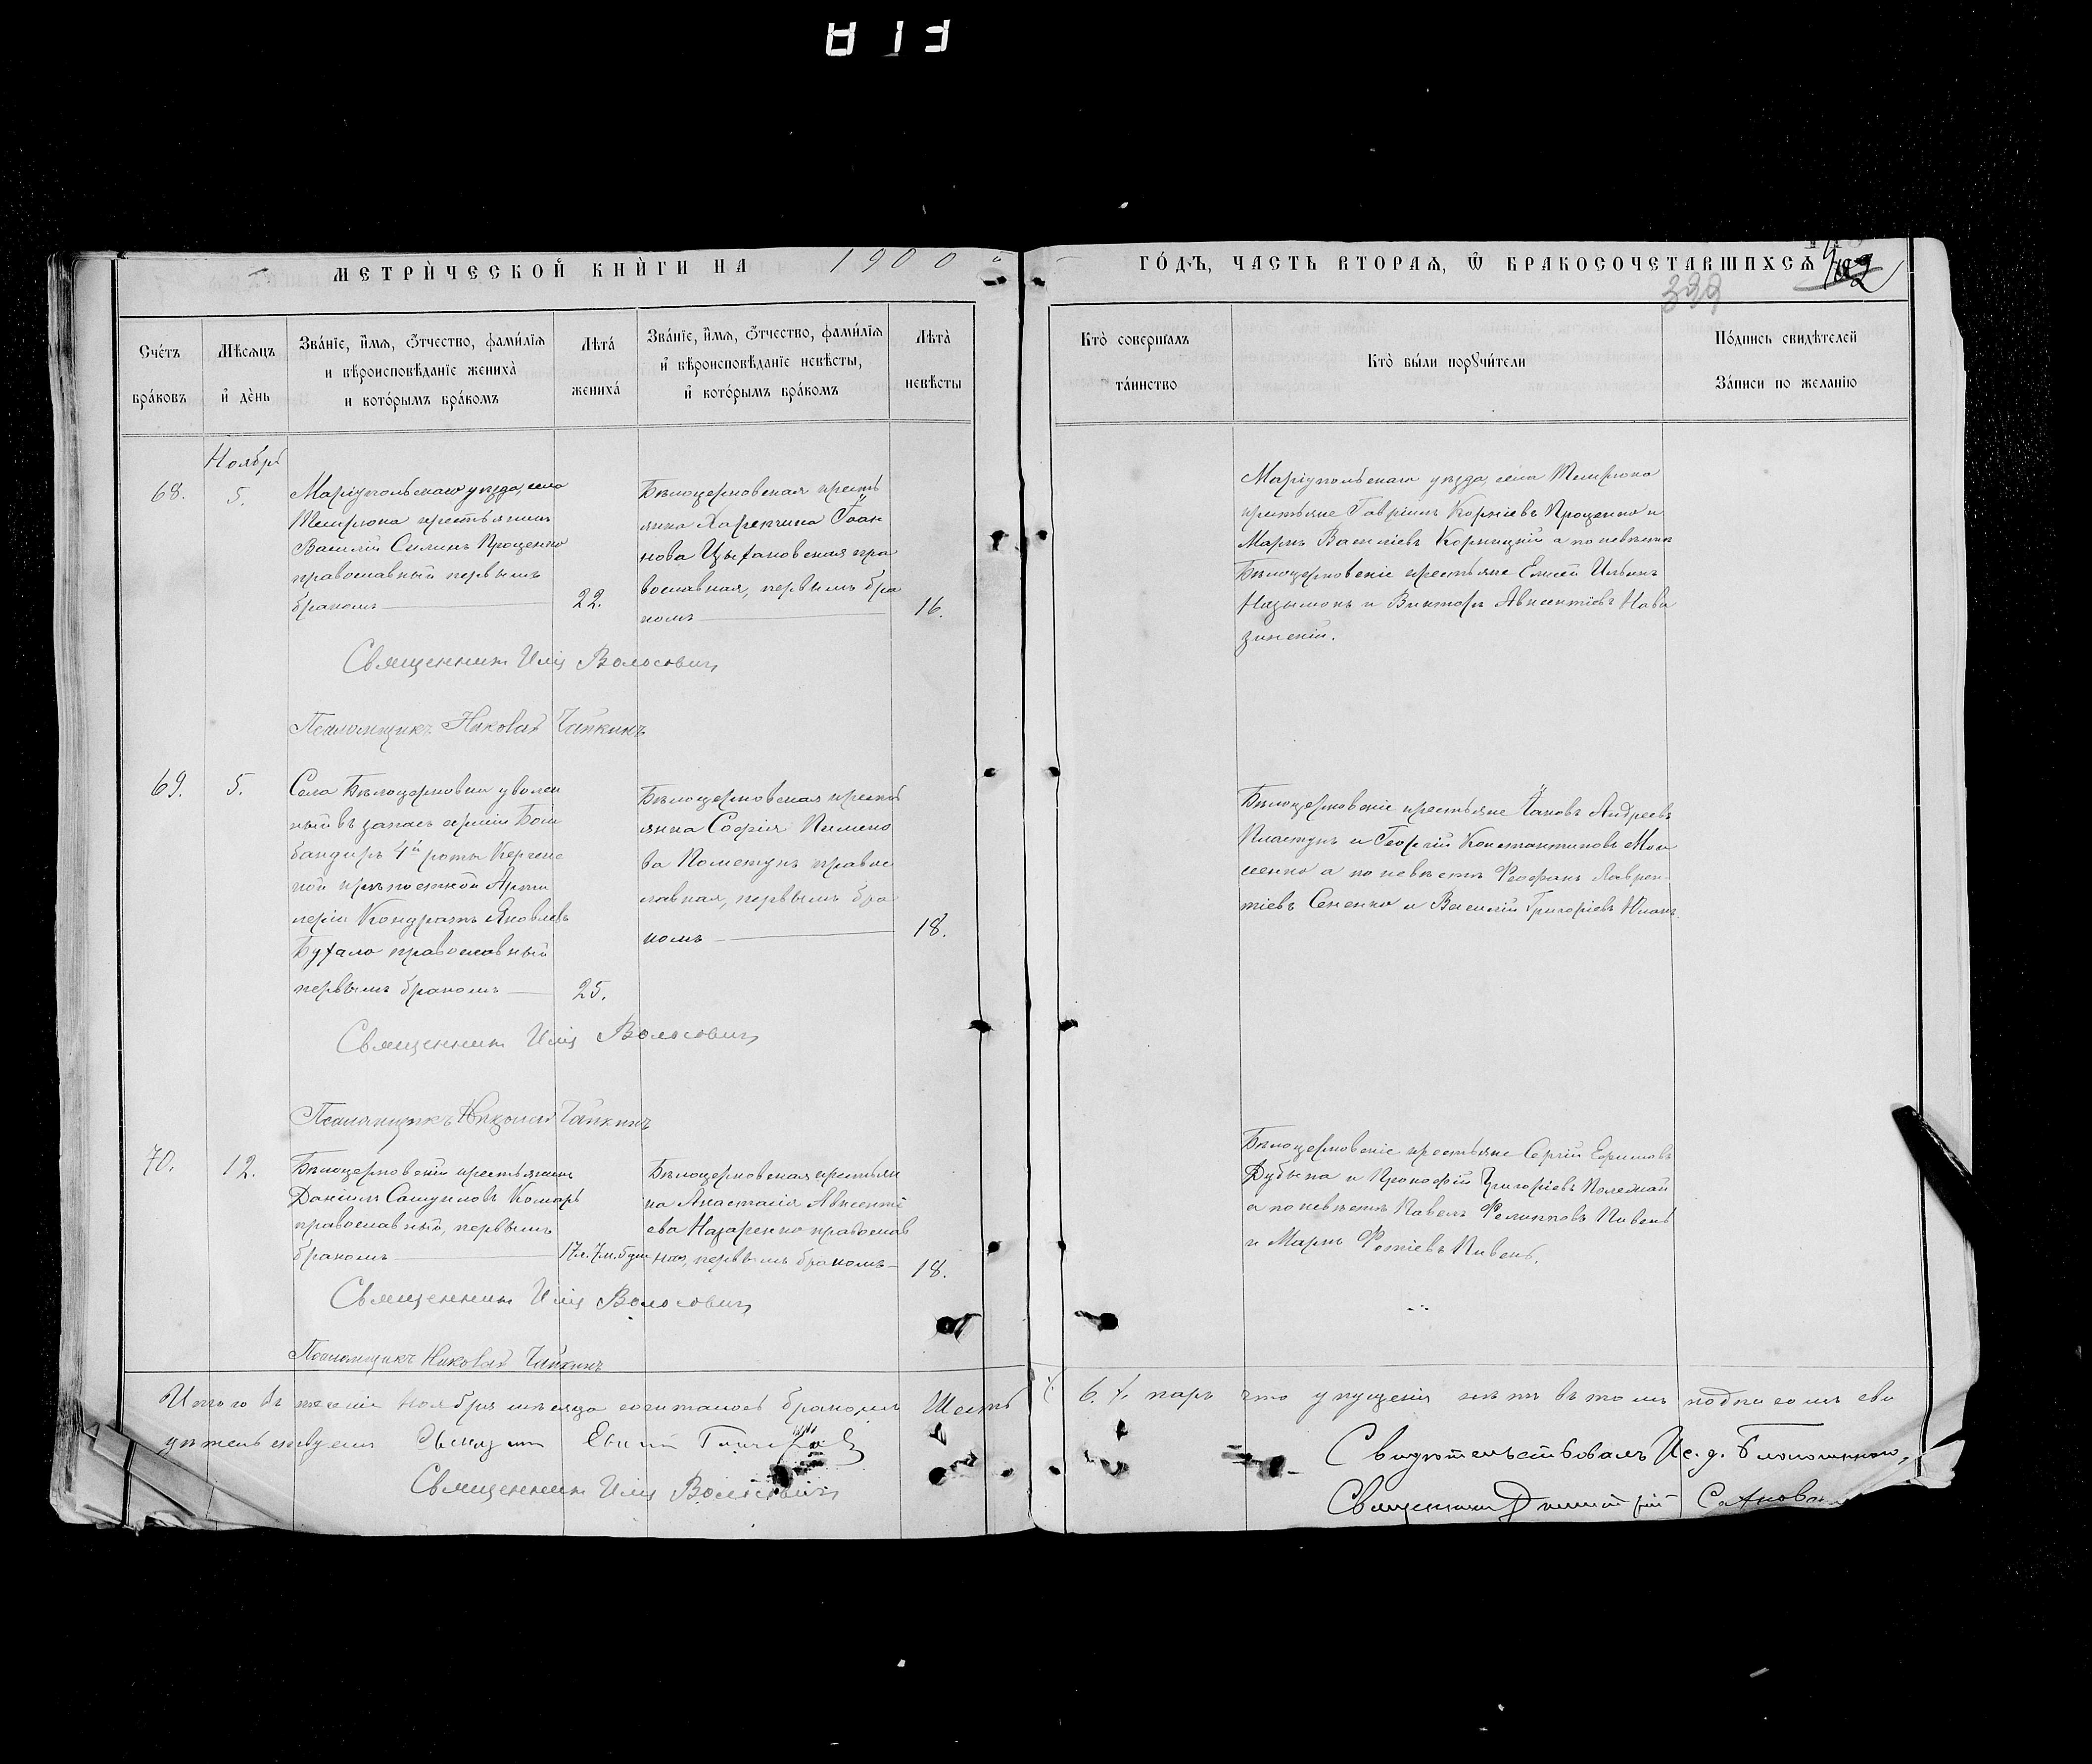 МЕТРИЧЕСКОЙ КНИГИ НА 1900
ГОДЪ, ЧАСТЬ ВТОРАЯ, Ѿ БРАКОСОЧЕТАВШИХСЯ
399
Счетъ браковъ
Мѣсяцъ и день
Званіе, имя, отчество, фамилія
и вѣроисповѣданіе жениха
и которымъ бракомъ
Лѣта жениха
Званіе, имя, отчество, фамилія
и вѣроисповѣданіе невѣсты,
и которымъ бракомъ
Лѣта невѣсты
Кто совершалъ
таинство
Кто были поручители
Подпись свидѣтелей
Записи по желанію
Ноябрь
68.
5.
Маріупольскаго уѣзда, села
Темрюка крестьянинъ
Василій Силинъ Проценко
православный первымъ
бракомъ
22.
Бѣлоцерковская кресть
янка Харитина Іоан
нова Цыгановская пра
вославная, первымъ бра
комъ
16.
Маріупольскаго уѣзда, села Темрюка
крестьяне Гавріилъ Корніевъ Проценко и
Маркъ Васильевъ Корницкій а по невѣстѣ
Бѣлоцерковскіе крестьяне Елисей Ильинъ
и Викторъ Авксентіевъ Нова
зинскій.
Священникъ Илія Волосовичъ
Псаломщикъ Николай Чайкинъ
69.
5.
Села Бѣлоцерковки уволен
ный въ запасъ арміи Бом
бандиръ 4й роты Керчен
ской крѣпостной Артил
леріи Кондратъ Яковлевъ
Бугало православный
первымъ бракомъ
25.
Бѣлоцерковская кресть
янка Софія Пимено
ва Пометунъ правос
лавная, первымъ бра
комъ
18.
Бѣлоцерковскіе крестьяне Іаковъ Андреевъ
Пластунъ и Георгій Константиновъ Мои
сеенко а по невѣстѣ Феофанъ Лаврен
тіевъ Сененко и Василій Григоріевъ
Священникъ Илія Волосовичъ
Псаломщикъ Николай Чайкинъ
70.
12.
Бѣлоцерковскій крестьянинъ
Даніилъ Самуиловъ Комаръ
православный, первымъ
бракомъ
17л. 7м. 5дн
Бѣлоцерковская крестьян
ка Анастасія Авксенті
ева Назаренко православ
ная, первымъ бракомъ
18.
Бѣлоцерковскіе крестьяне Сергій Ефимовъ
Дубына и Прокофій Григоріевъ
а по невѣстѣ Павелъ Филипповъ Пивень
и Маркъ Фотіевъ Пивень.
Священникъ Илія Волосовичъ
Псаломщикъ Николай Чайкинъ
Итого въ теченіи ноября мѣсяца сочеталось бракомъ Шесть
6. паръ что упущенія нѣтъ въ томъ подписомъ сви
дѣтельствуемъ
Священникъ Илія Волосовичъ
Свидѣтельствовалъ Ис. д. Благочиннаго,
Священникъ Димитрій